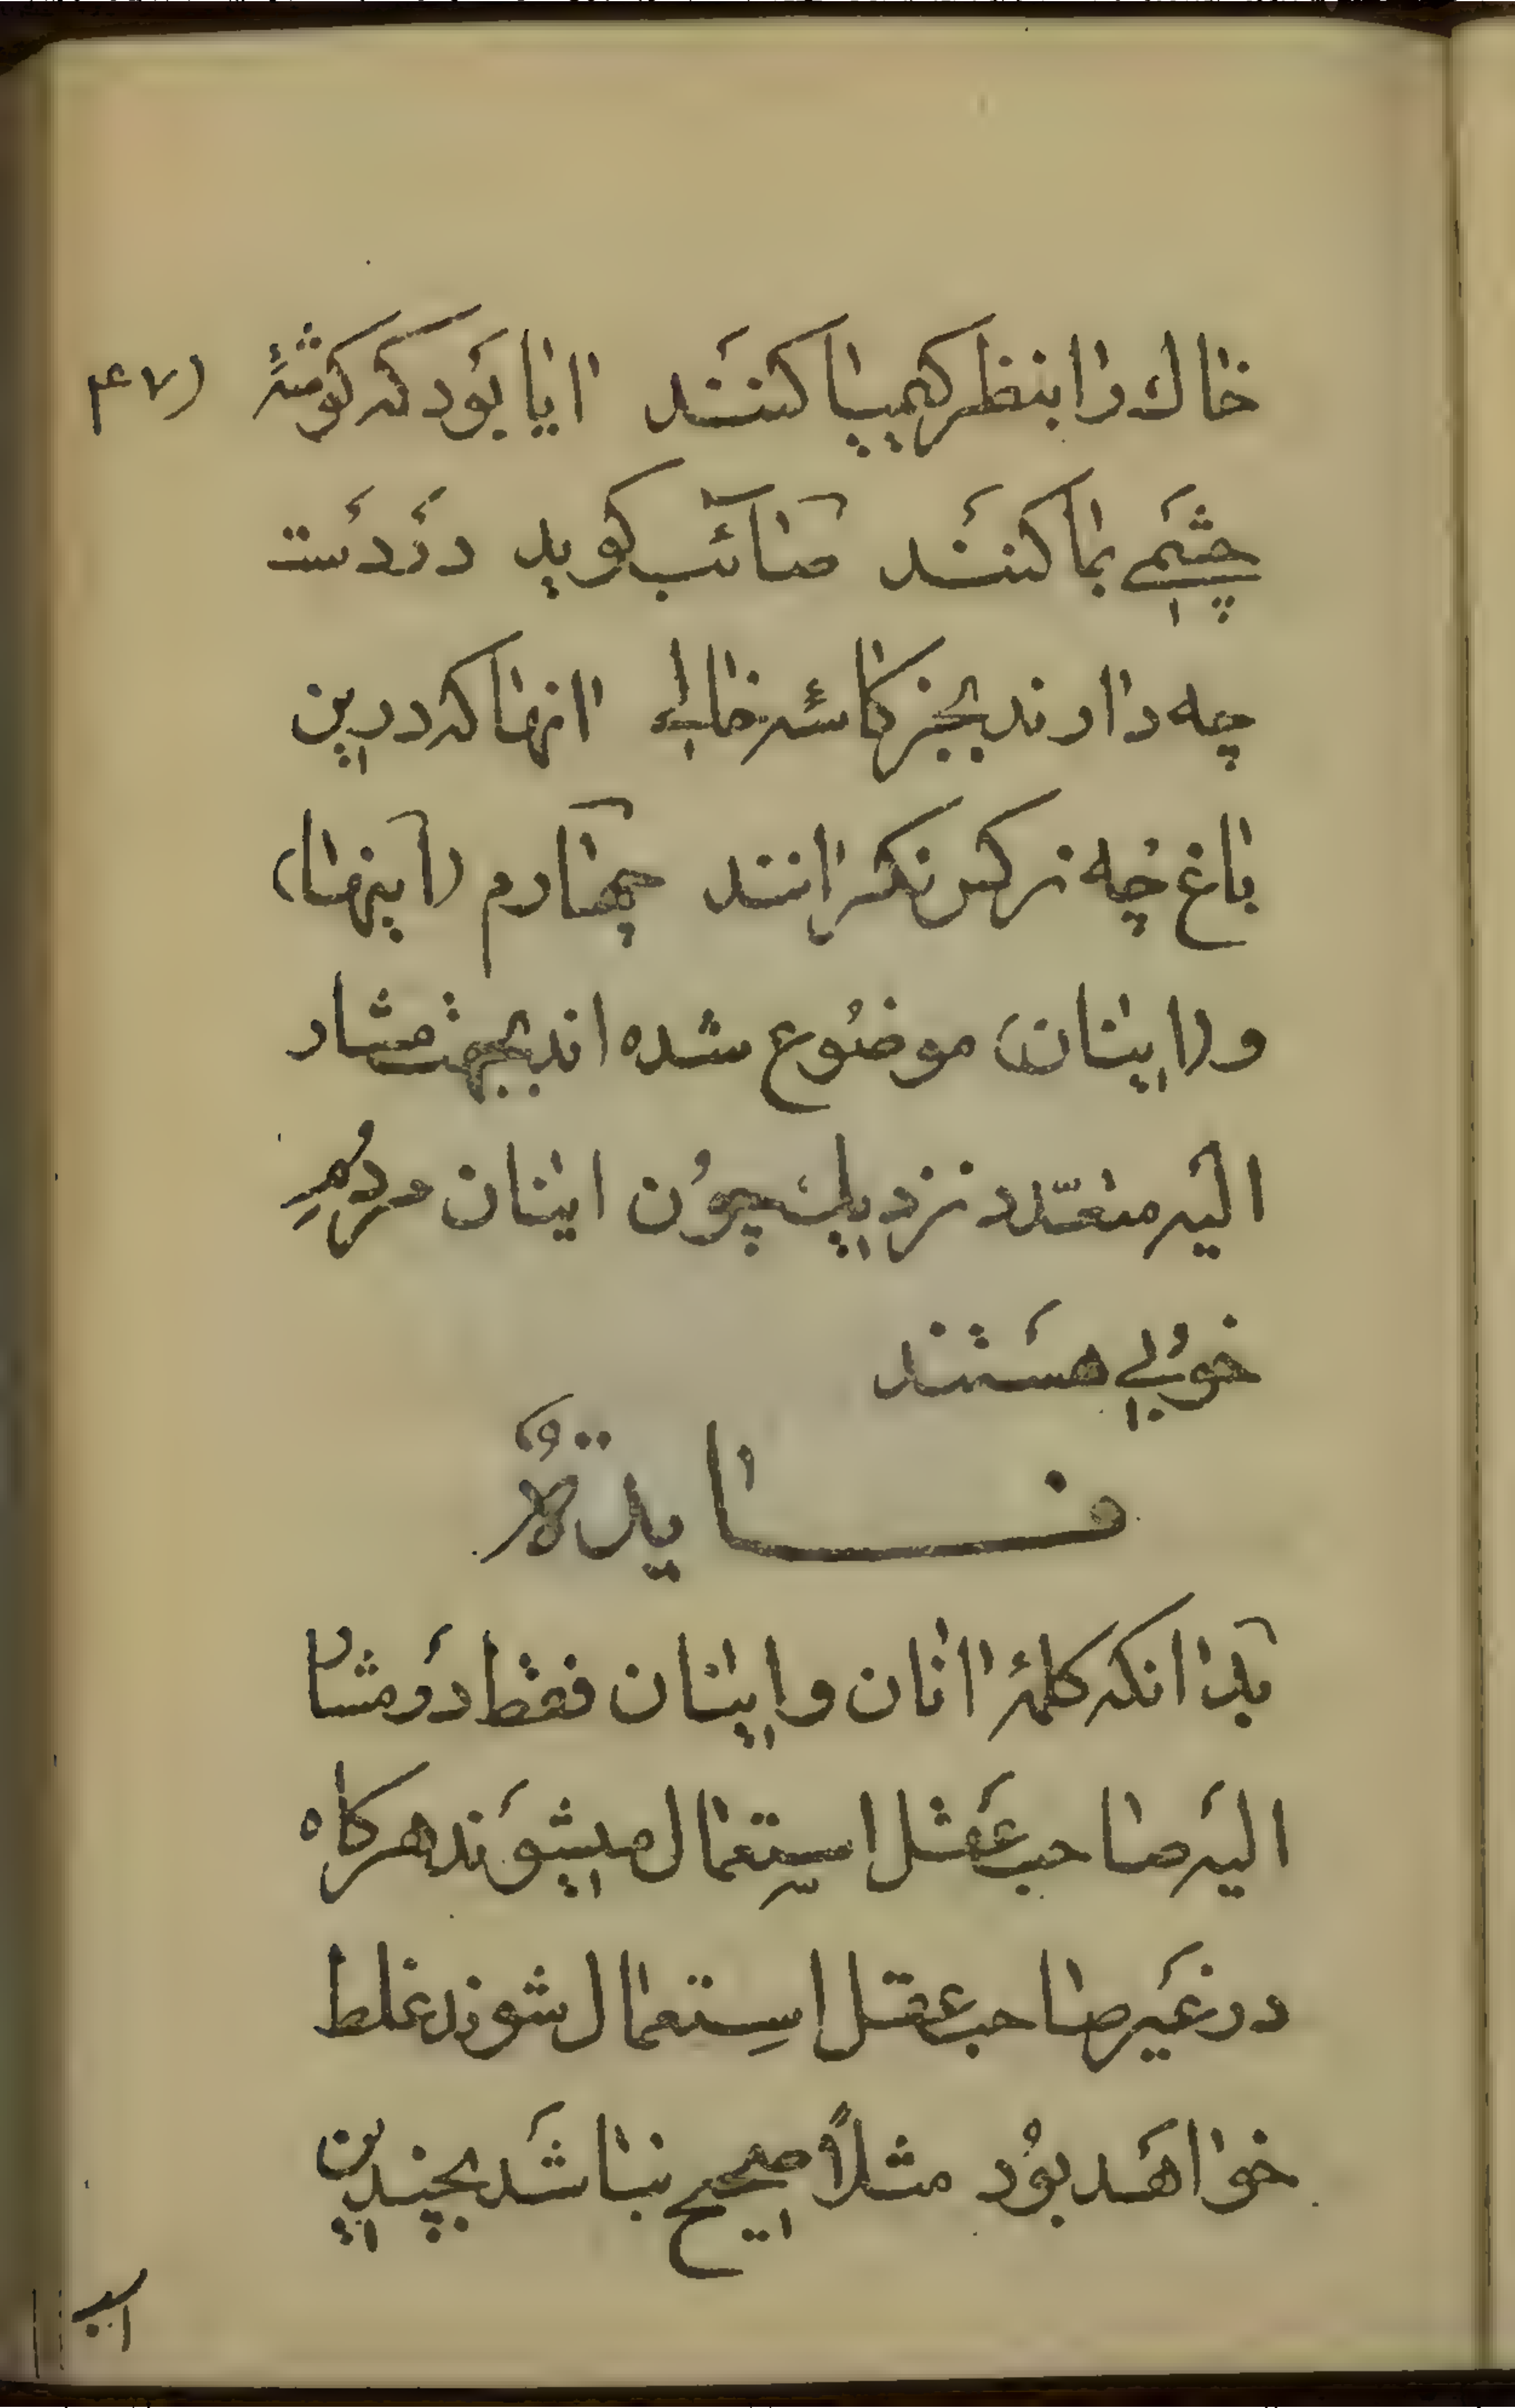 خاك را بنظر کیمیا کنند اایا بود که کوشهٔ (۴۷
چشمی بما کنند صائب کوید در دست
چه داارند بجز کاسهٔ خالی اانها که درین
باغ چه نرکس نکرانند چهارم (اینها)
و (ایشان) موضوع شده اند بجهت مشار
الیه متعدّد نزدیك چون ایشان مردمِ
خوبی هستند
فایدةٌ
بداانکه کلمهٔ اانان و ایشان فقط در مشار
الیه صاحب عقل استعمال میشوند هر کاه
در غیر صاحب عقل استعمال شوند غلط
خوااهد بود مثلاً صحیح نباشد بچیدین
اسب